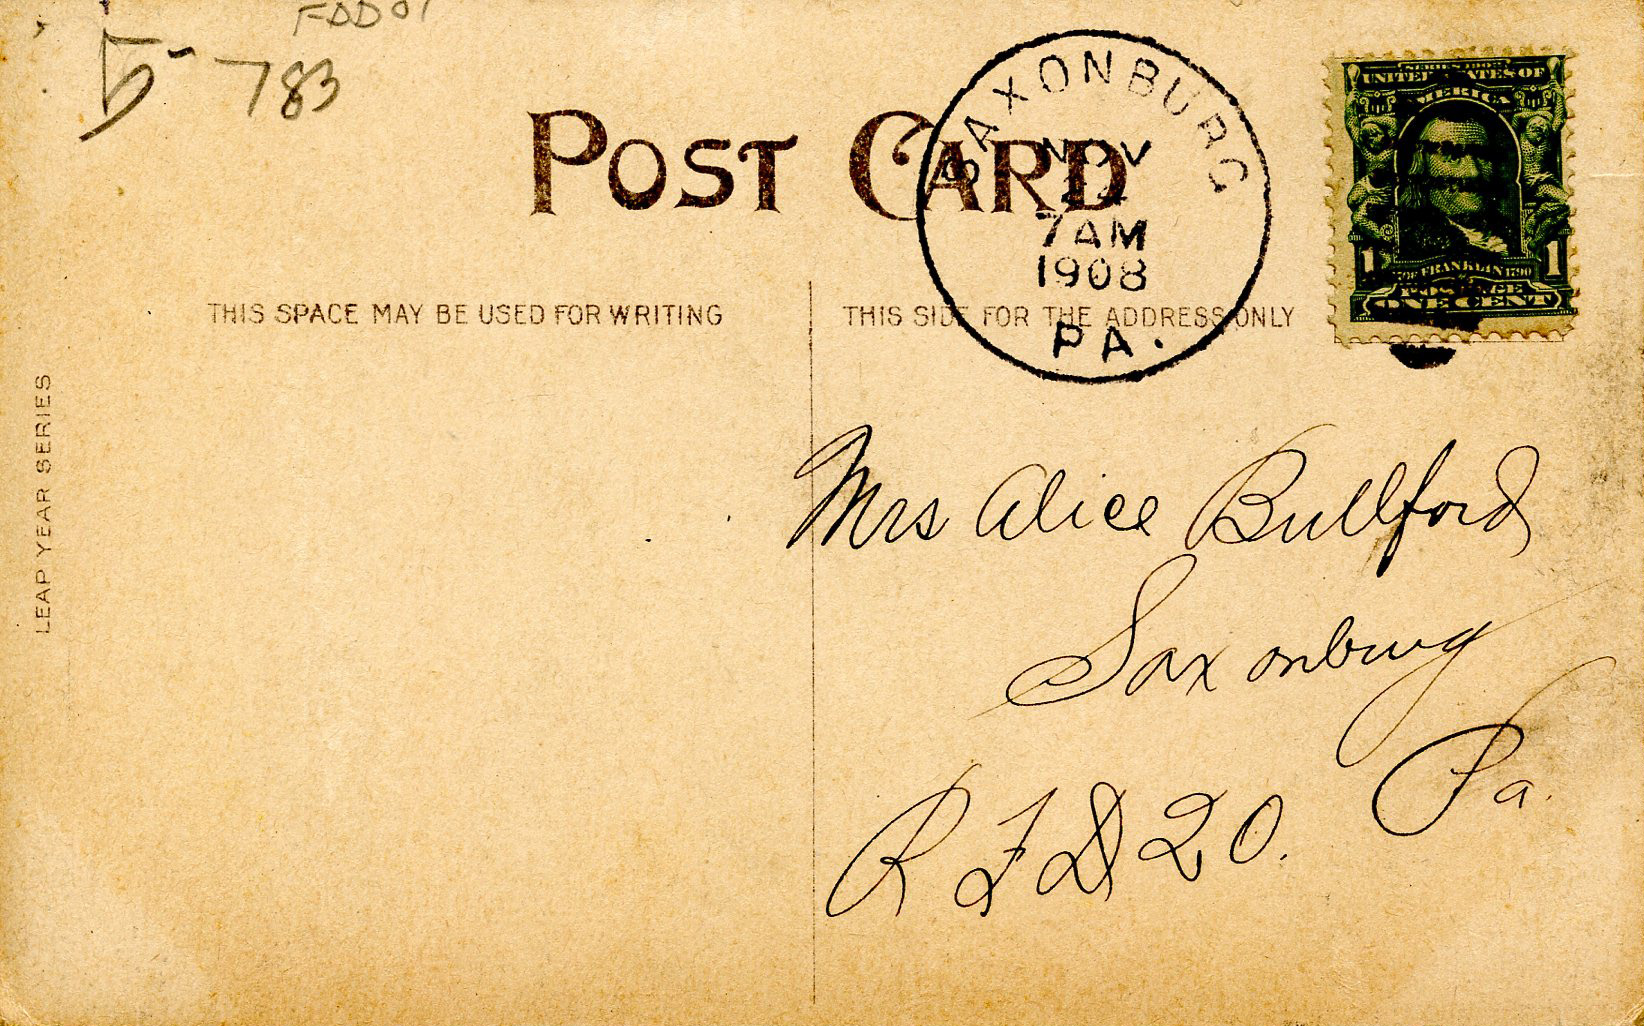 5-
783
POST CARD
SAXONBURG
NOV
7 AM
1908
PA.
SERIES 1902
UNITED STATES OF
AMERICA
1 FRANKLIN 1790 1
POSTAGE
ONE CENT
THIS SPACE MAY BE USED FOR WRITING
THIS SIDE FOR THE ADDRESS ONLY
LEAP YEAR SERIES
Mrs Alice Bullford
Saxonburg
Pa.
R F D 20.